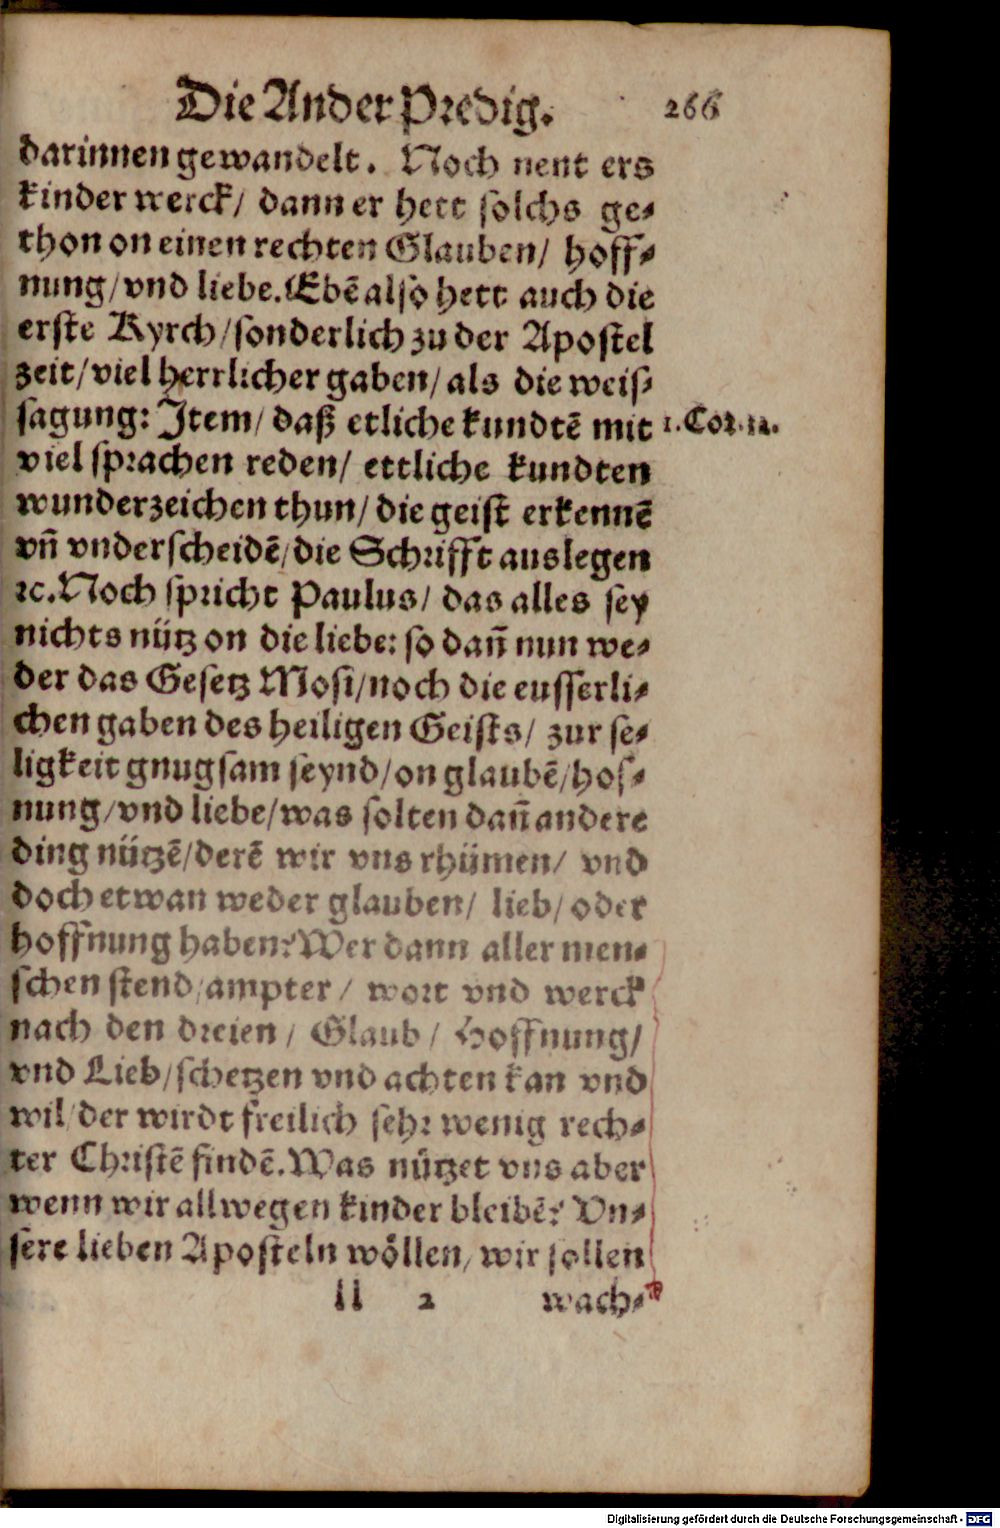 Die Ander Predig. 266
darinnen gewandelt. Noch nent ers
kinder werck/ dann er hett solchs ge-
thon on einen rechten Glauben/ hoff-
nung/ vnd liebe. Ebē also hett auch die
erste Kyrch/ sonderlich zu der Apostel
zeit/ viel herrlicher gaben/ als die weis-
sagung: Item/ daß etliche kundtē mit 1. Cor. 12.
viel sprachen reden/ ettliche kundten
wunderzeichen thun/ die geist erkennē
vñ vnderscheidē/ die Schrifft auslegen
ꝛc. Noch spricht Paulus/ das alles sey
nichts nütz on die liebe: so dañ nun we-
der das Gesetz Mosi/ noch die eusserli-
chen gaben des heiligen Geists/ zur se-
ligkeit gnugsam seynd/ on glaubē/ hof-
nung/ vnd liebe/ was solten dañ andere
ding nützē/ derē wir vns rhümen/ vnd
doch etwan weder glauben/ lieb/ oder
hoffnung haben? Wer dann aller men-
schen stend/ ampter/ wort vnd werck
nach den dreien/ Glaub/ Hoffnung/
vnd Lieb/ schetzen vnd achten kan vnd
wil/ der wirdt freilich sehr wenig rech-
ter Christē findē. Was nützet vns aber
wenn wir allwegen kinder bleibē? Vn-
sere lieben Aposteln wöllen/ wir sollen
ll 2 wach-
Digitalisierung gefördert durch die Deutsche Forschungsgemeinschaft - DFG